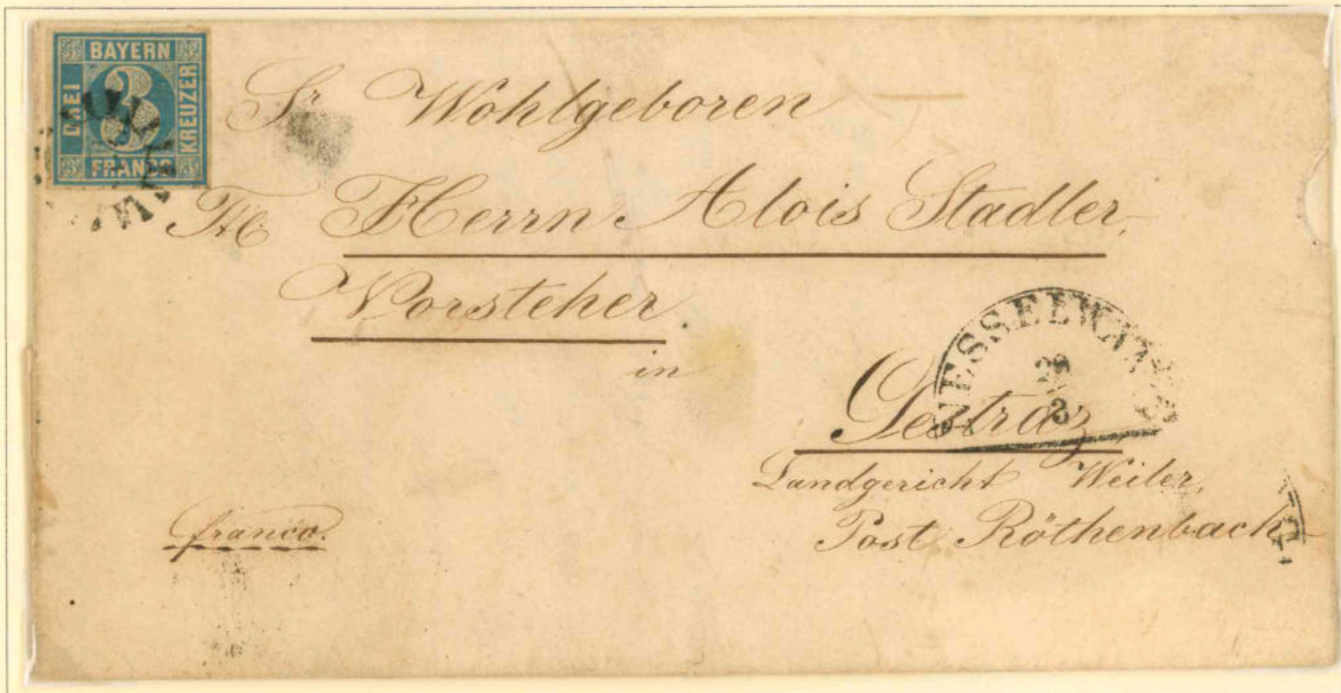 BAYERN
DREI 3 KREUZER
FRANCO
Sr Wohlgeboren
Herrn Alois Stadler,
Vorsteher
in
Gestraz
Landgericht Weiler,
Post Röthenbach
franco.
NESSELWANG